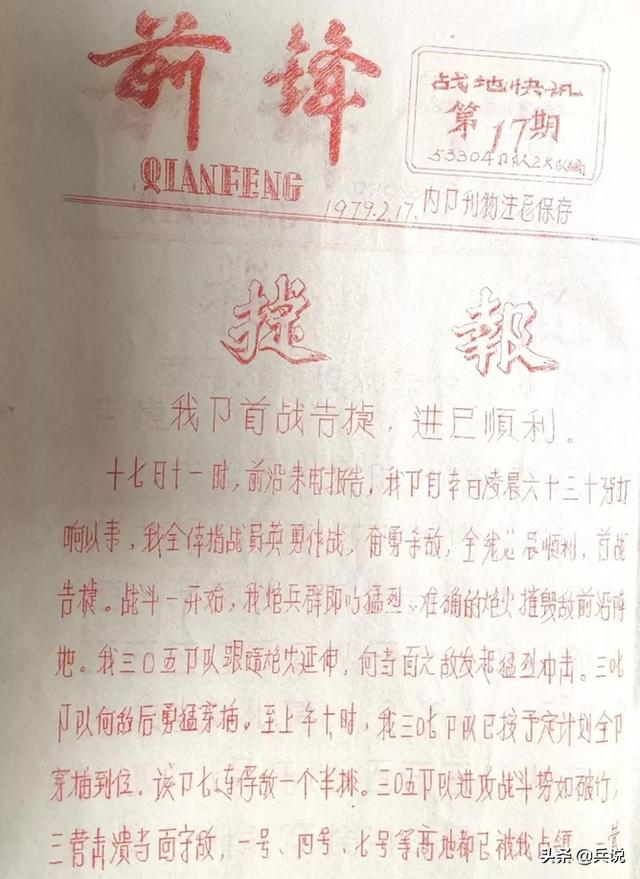 前锋
QIANFENG
战地快讯
第17期
53304卩队2大队编
1979.2.17. 内卩刊物注意保存
捷報
我卩首战告捷，进己順利。
十七日十一时，前沿来电报告，我卩自本日凌晨六十三十分打
响以来，我全体指战員英勇作战，奋勇杀敌，全线 展順利，首战
告捷。战斗一开始，我炮兵群即以猛烈、准确的炮火摧毁敌前沿阵
地。我三〇五卩队跟随炮火延伸，向当面之敌发起猛烈冲击。三〇六
卩队向敌后勇猛穿插。至上午十时，我三〇六卩队已按予定计划全卩
穿插到位。该卩七连俘敌一个半排。三〇五卩队进攻战斗势如破竹，
三营击溃当面守敌，一号、四号、七号等高地都已被我占领。二营
头条 @兵说